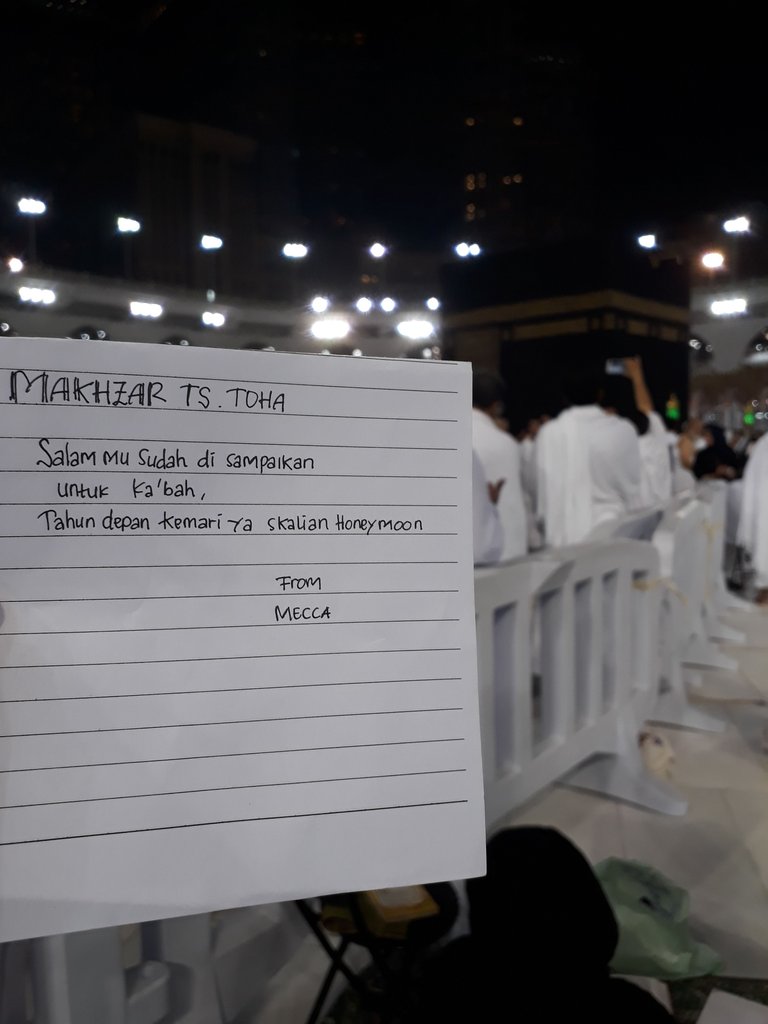 MAKHZAR TS. TOHA
Salam mu sudah di sampaikan
untuk Ka'bah,
Tahun depan kemari ya skalian Honeymoon
From
MECCA